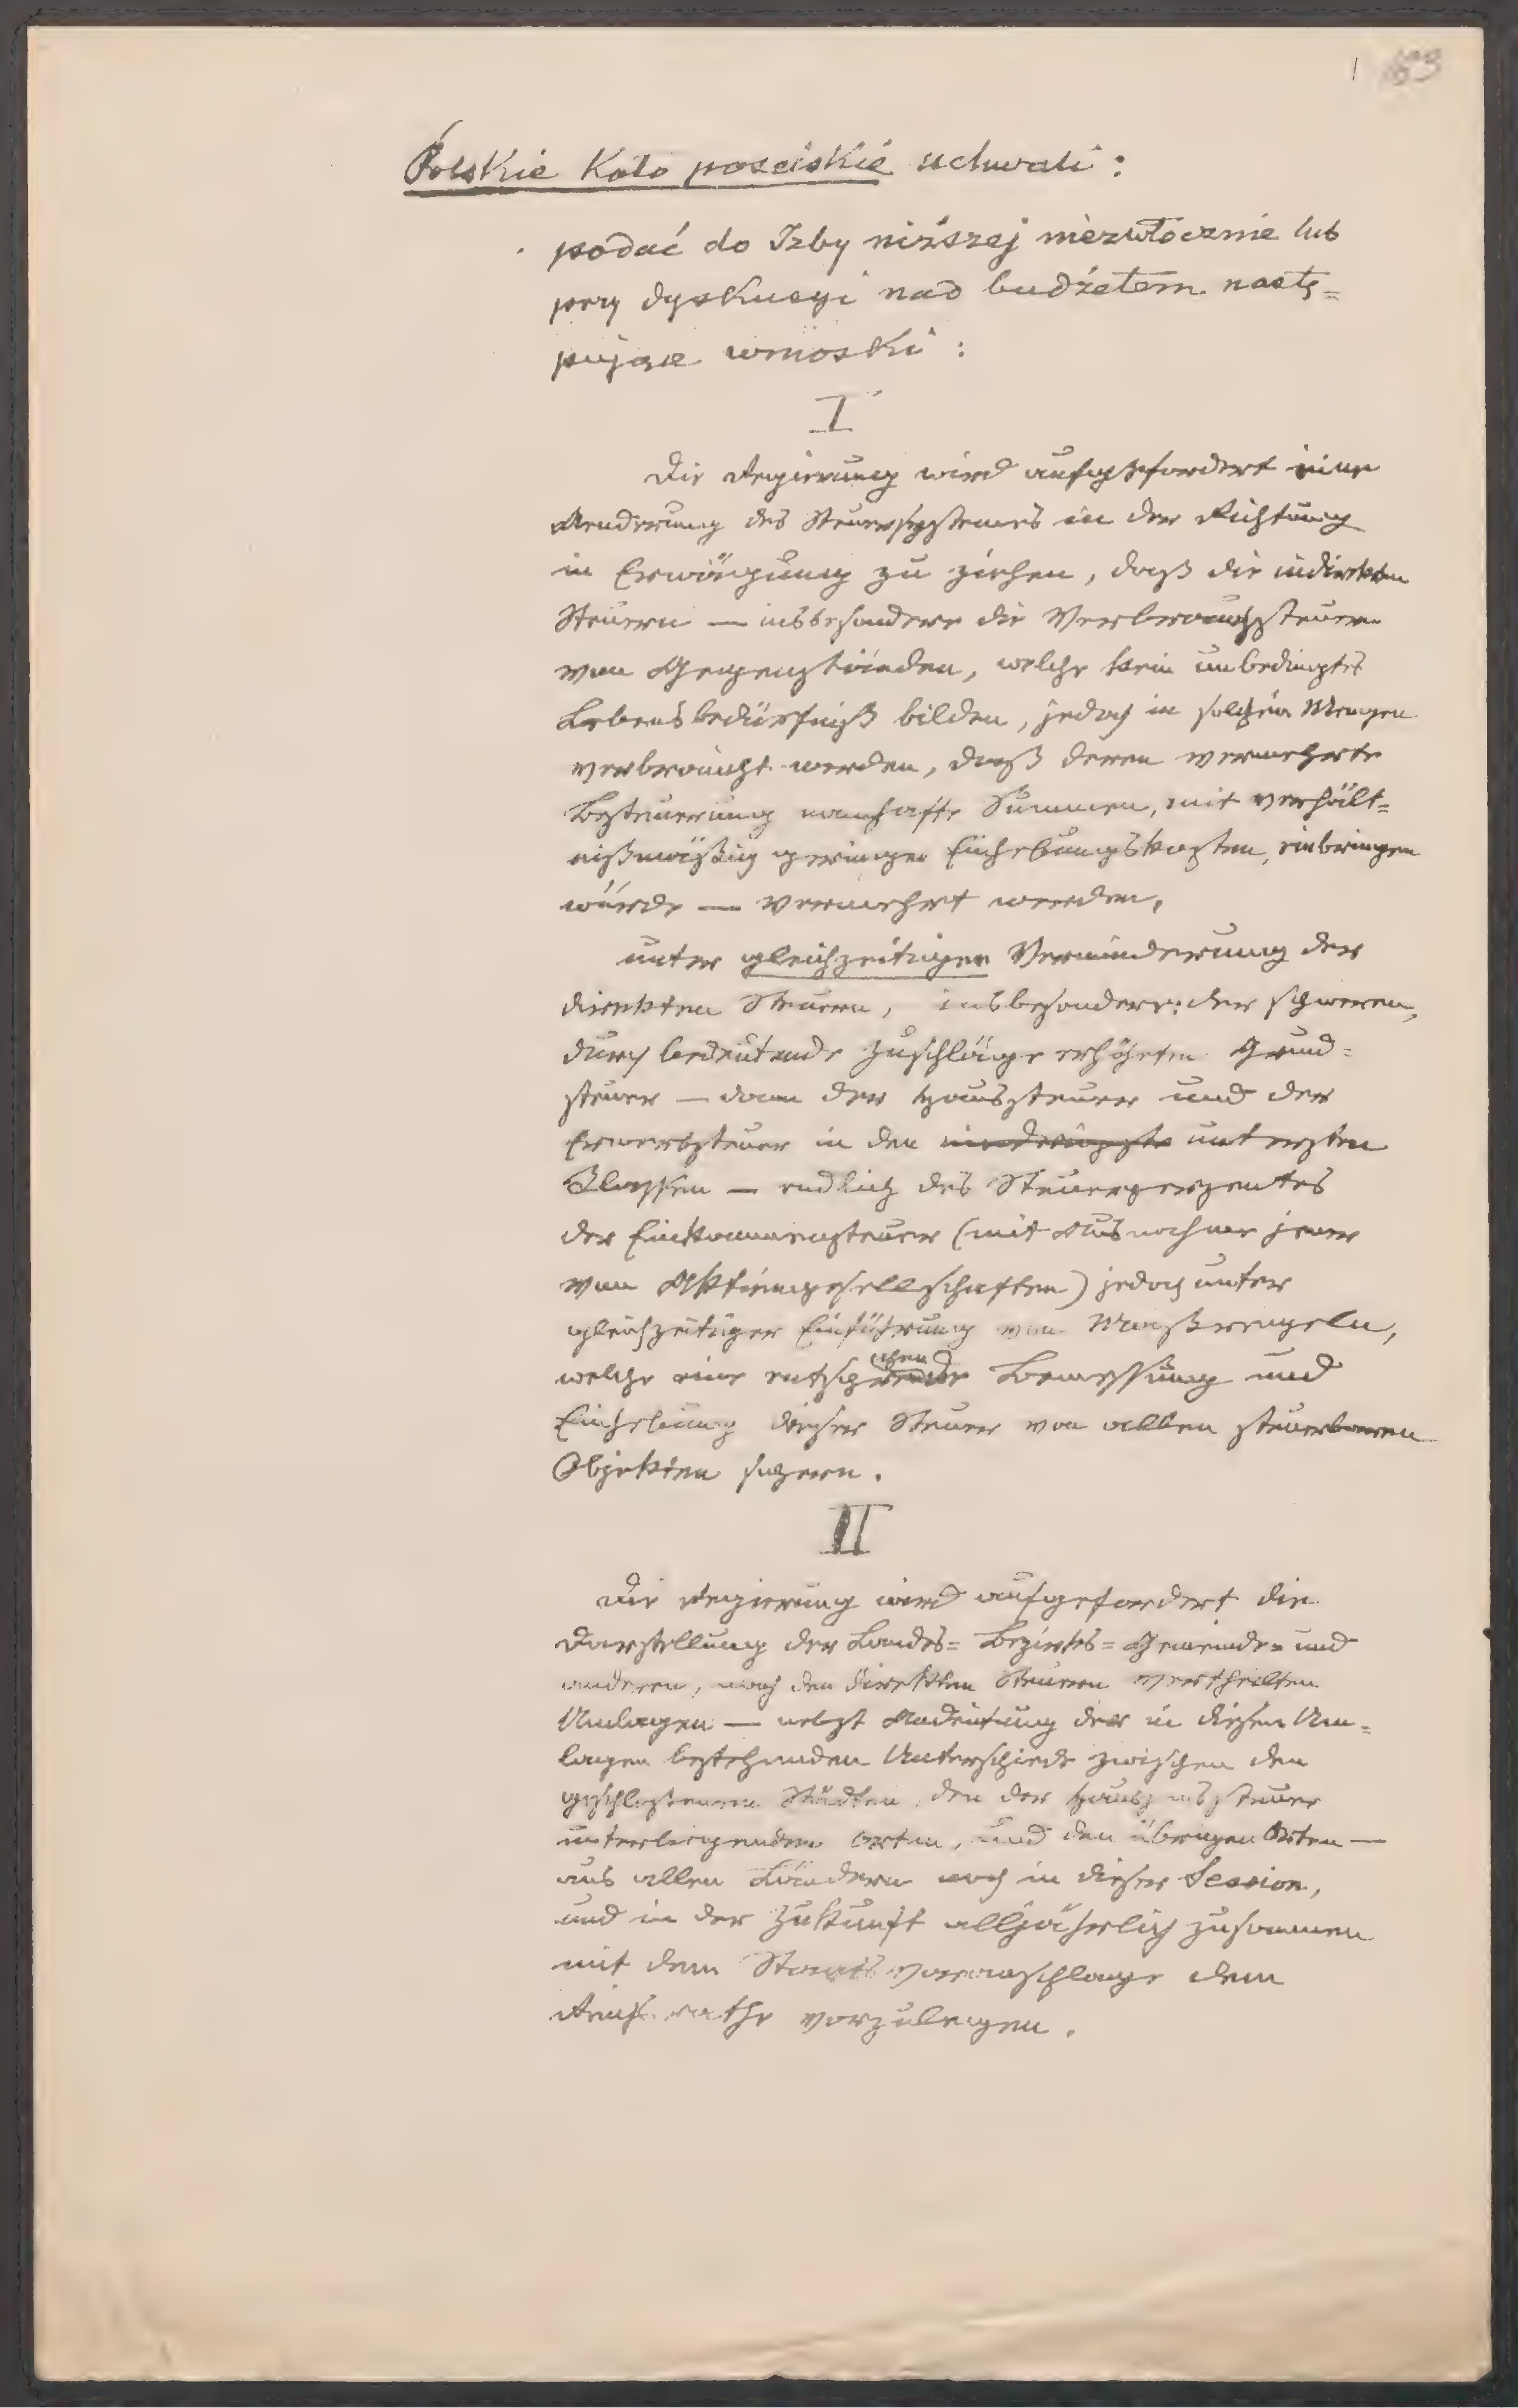 1 163
Polskie Koło poselskie uchwali:
podać do Izby niższej niezwłocznie lub
przy dyskusyi nad budżetem nastę=
pujące wnioski:
I
Die Regierung wird aufgefordert eine
Aenderung des Steuersystemes in der Richtung
in Erwägung zu ziehen, daß die indirekten
Steuern — insbesondere die Verbrauchssteuern
von Gegenständen, welche kein unbedingtes
Lebensbedürfniß bilden, jedoch in solchen Mengen
verbraucht werden, daß deren vermehrte
Besteuerung namhafte Summen, mit verhält=
nißmäßig geringen Einhebungskosten, einbringen
würde — vermehrt werden,
unter gleichzeitiger Verminderung der
direkten Steuern, insbesondere: der schweren,
durch bedeutende Zuschläge erhöhten Grund=
steuer — dann der Haussteuer und der
Erwerbsteuer in den untersten
Klassen — endlich des Steuerperzentes
der Einkommensteuer (mit Ausnahme jener
von Aktiengesellschaften) jedoch unter
gleichzeitiger Einführung von Maßregeln,
welche eine entsprechende Bemessung und
Einhebung dieser Steuer von allen steuerbaren
Objekten sichern.
II
Die Regierung wird aufgefordert die
Darstellung der Landes= Bezirks= Gemeinde= und
anderen, nach den direkten Steuern vertheilten
Umlagen — nebst Andeutung der in diesen Um=
lagen bestehenden Unterschiede zwischen den
geschlossenen Städten, den der Hauszinssteuer
unterliegenden Orten, und den übrigen Orten —
aus allen Ländern noch in dieser Session,
und in der Zukunft alljährlich zusammen
mit dem Staatsvoranschlage dem
Reichsrathe vorzulegen.